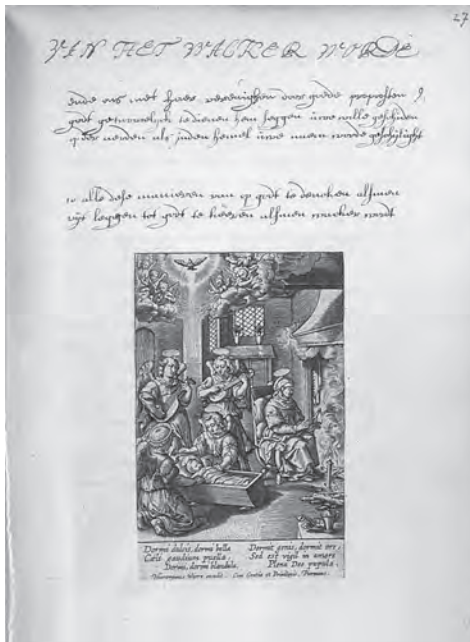 27
VAN HET WACKER WORDE
ende ons met haer vereenighen door goede propoosten
godt getrouwelijck te dienen hem seggen uwe wille geschieden
op der aerden als inden hemel uwe naem worde geheylight
alle dese manieren van op godt te dencken alsmen
tot godt te keeren alsmen wacker wordt
Dormi dulcis, dormi bella
Cæli gaudium puella
Dormi, dormi blandula.
Dormit genis, dormit ore,
Sed est vigil in amore
Plena Deo pupula.
Hieronymus Wierx excudit. Cum Gratia et Privilegio. Piermans.